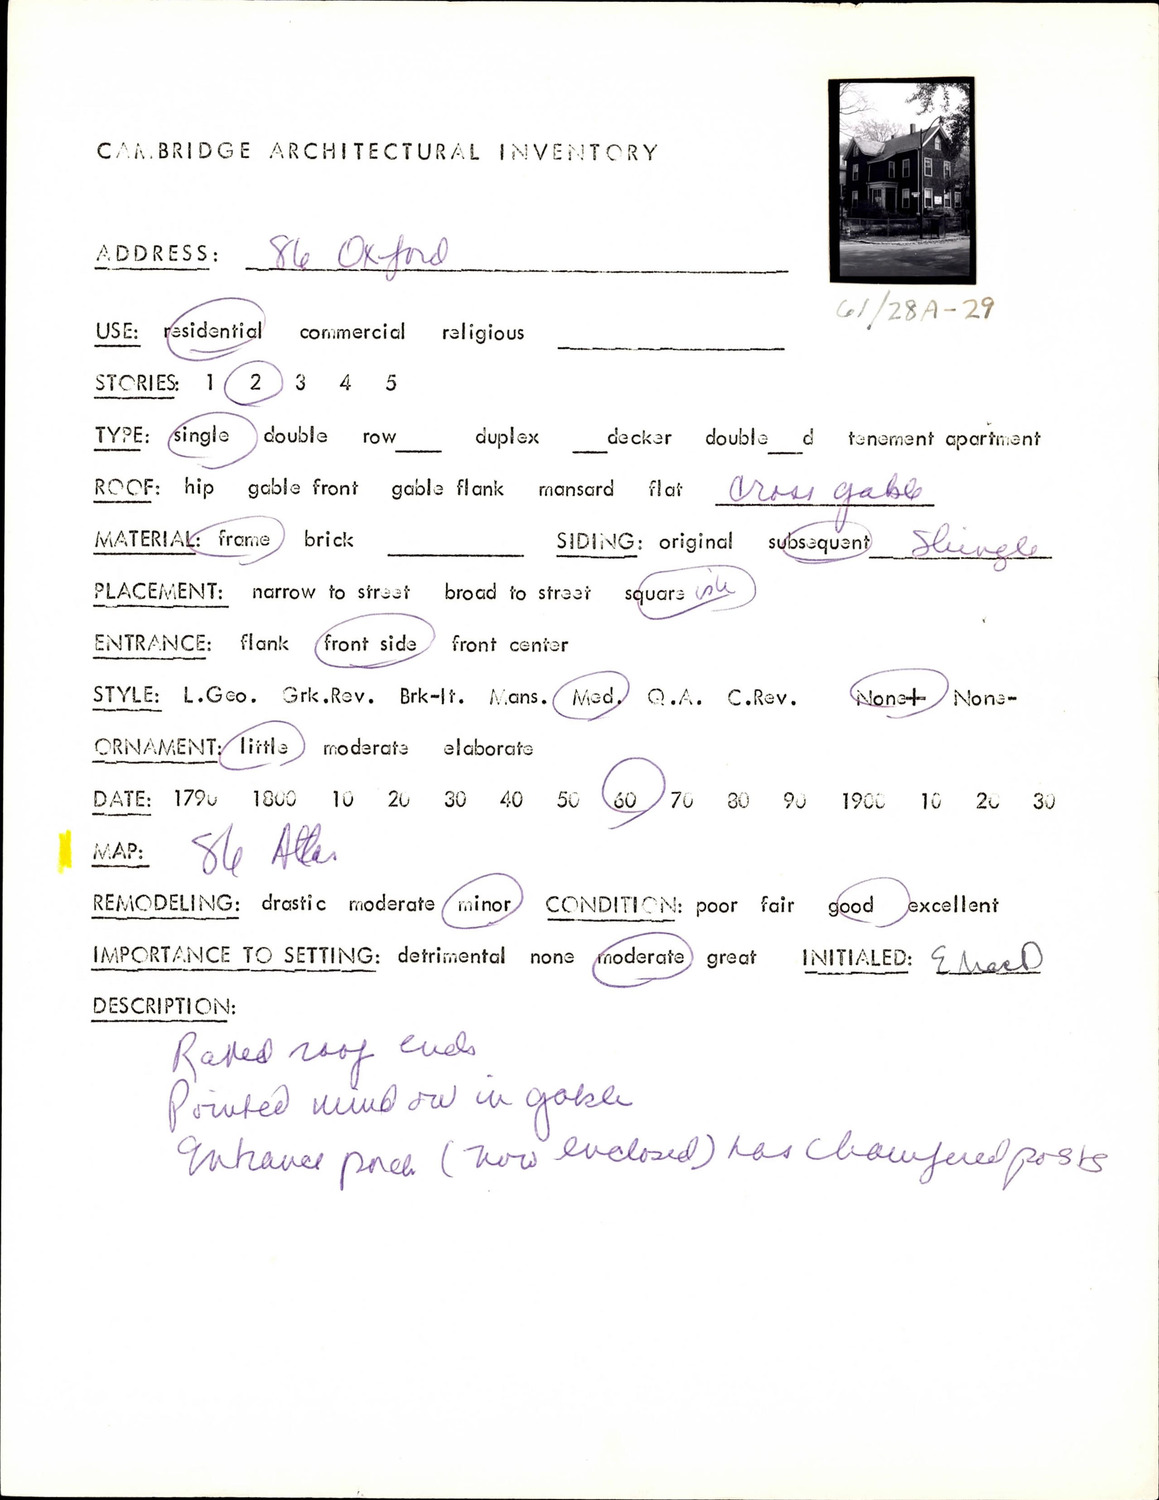 CAMBRIDGE ARCHITECTURAL INVENTORY
ADDRESS: 86 Oxford
61/28A-29
USE: residential commercial religious
STORIES: 1 2 3 4 5
TYPE: single double row___ duplex ___decker double___d tenement apartment
ROOF: hip gable front gable flank mansard flat Cross gable
MATERIAL: frame brick SIDING: original subsequent Shingle
PLACEMENT: narrow to street broad to street square ish
ENTRANCE: flank front side front center
STYLE: L.Geo. Grk.Rev. Brk-It. Mans. Med. Q.A. C.Rev. None+ None-
ORNAMENT: little moderate elaborate
DATE: 1790 1800 10 20 30 40 50 60 70 80 90 1900 10 20 30
MAP: 86 Atlas
REMODELING: drastic moderate minor CONDITION: poor fair good excellent
IMPORTANCE TO SETTING: detrimental none moderate great INITIALED: EMacD
DESCRIPTION:
Raked roof ends
Pointed window in gable
Entrance porch (now enclosed) has chamfered posts